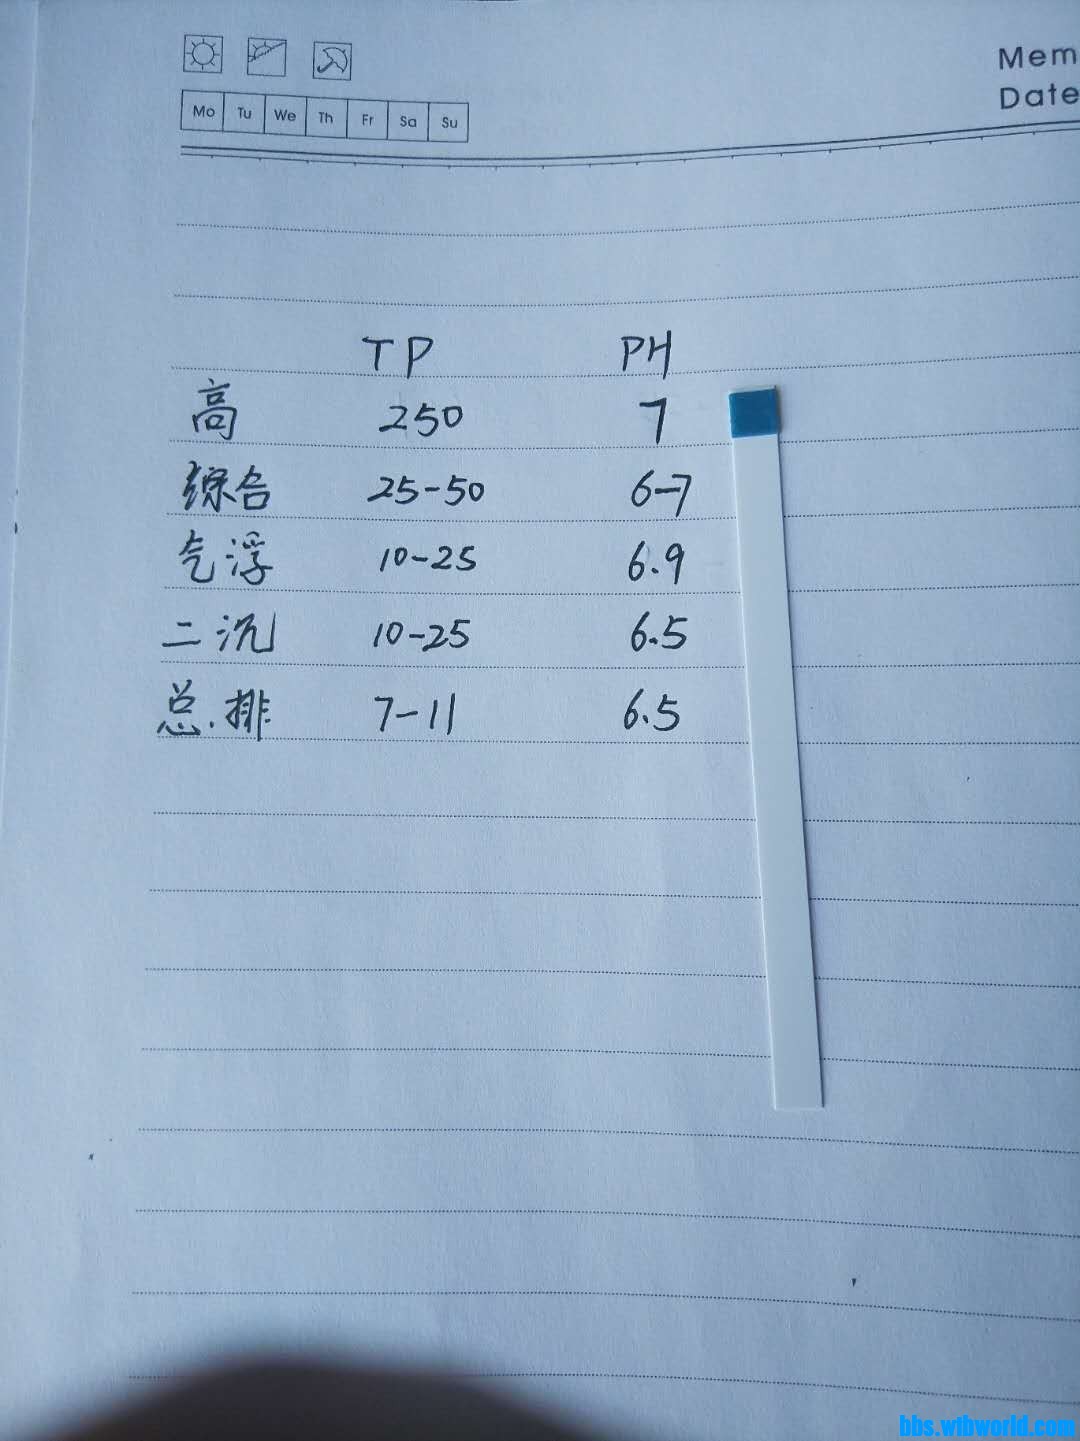 Mem
Date
Mo Tu We Th Fr Sa Su
TP PH
高 250 7
综合 25-50 6-7
气浮 10-25 6.9
二沉 10-25 6.5
总.排 7-11 6.5
bbs.wibworld.com